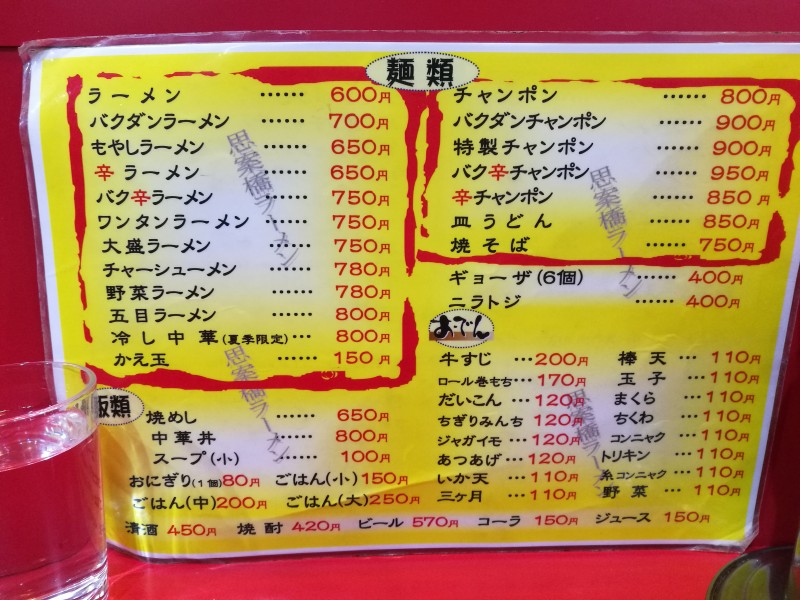 麺類
ラーメン ‥‥‥ 600円
バクダンラーメン 700円
もやしラーメン ‥‥‥ 650円
辛ラーメン ‥‥‥ 650円
バク辛ラーメン ‥‥‥ 750円
ワンタンラーメン ‥‥‥ 750円
大盛ラーメン ‥‥‥ 750円
チャーシューメン ‥‥‥ 780円
野菜ラーメン ‥‥‥ 780円
五目ラーメン ‥‥‥ 800円
冷し中華(夏季限定)‥‥ 800円
かえ玉 ‥‥‥ 150円
チャンポン ‥‥‥ 800円
バクダンチャンポン ‥‥‥ 900円
特製チャンポン ‥‥‥ 900円
バク辛チャンポン ‥‥‥ 950円
辛チャンポン ‥‥‥ 850円
皿うどん ‥‥‥ 850円
焼そば ‥‥‥ 750円
ギョーザ(6個) ‥‥‥ 400円
ニラトジ ‥‥‥ 400円
おでん
牛すじ ‥‥ 200円
ロール巻もち‥‥ 170円
だいこん ‥‥ 120円
ちぎりみんち ‥‥ 120円
ジャガイモ ‥‥ 120円
あつあげ ‥‥ 120円
いか天 ‥‥ 110円
三ヶ月 ‥‥ 110円
棒天 ‥‥ 110円
玉子 ‥‥ 110円
まくら ‥‥ 110円
ちくわ ‥‥ 110円
コンニャク ‥‥ 110円
トリキン ‥‥ 110円
糸コンニャク ‥‥ 110円
野菜 ‥‥ 110円
飯類
焼めし ‥‥‥ 650円
中華丼 ‥‥‥ 800円
スープ(小) ‥‥‥ 100円
おにぎり(1個)80円 ごはん(小)150円
ごはん(中)200円 ごはん(大)250円
清酒 450円 焼酎 420円 ビール 570円 コーラ 150円 ジュース 150円
思案橋ラーメン
思案橋ラーメン
思案橋ラーメン
思案橋ラーメン